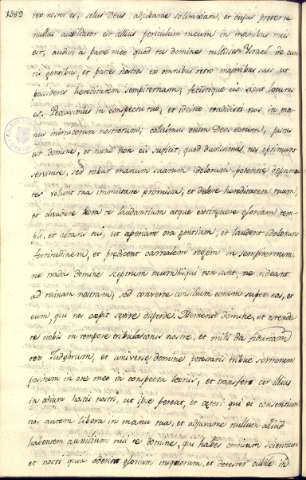 1382
ter nemo es, solus Deus adjuvame solitariam, et cujus preter te
nullus auxiliator est alius. periculum meum in manibus meis
est, audivi a patre meo quod tu domine tulisses Israel de cunc
tis gentibus, et patres nostros ex omnibus retro majoribus suis ut
possideres hereditatem sempiternam, fecistique eis sicut locutus
es. Peccavimus in conspectu tuo, et idcirco tradidisti nos in ma
nus inimicorum nostrorum, coluimus enim Deos eorum, justus
es domine, et nunc non eis suficit, quod durissima nos opprimunt
servitute, sed robur manuum suarum idolorum potentiae deputan
tes volunt tua mutare promissa, et delere hereditatem tuam,
et claudere hora te laudantium atque extinguere gloriam tem
pli, et altaris tui, ut aperiant ora gentium, et laudent idolorum
fortitudinem, et praedicent carnalem regem in sempiternum
ne tradas domine sceptrum tuum his qui non sunt, ne rideant
ad ruinam nostram, sed converte consilium eorum super eos, et
eum, qui in nos coepit saevire disperde. Memento domine, et ostende
te nobis in tempore tribulationis nostrae, et mihi da fiduciam
rex Deorum, et universae domine potestatis tribue sermonem
compositum in ore meo in conspectu leonis, et transfer cor illius
in odium hostis nostri, ut ipse pereat, et ceteri qui ei consentiunt
nos autem libera in manu tua, et adjuva me nullum aliud
habentem auxilium nisi te domine, qui habes omnium scientiam
et nosti quia oderim gloriam iniquorum, et detester cubile in